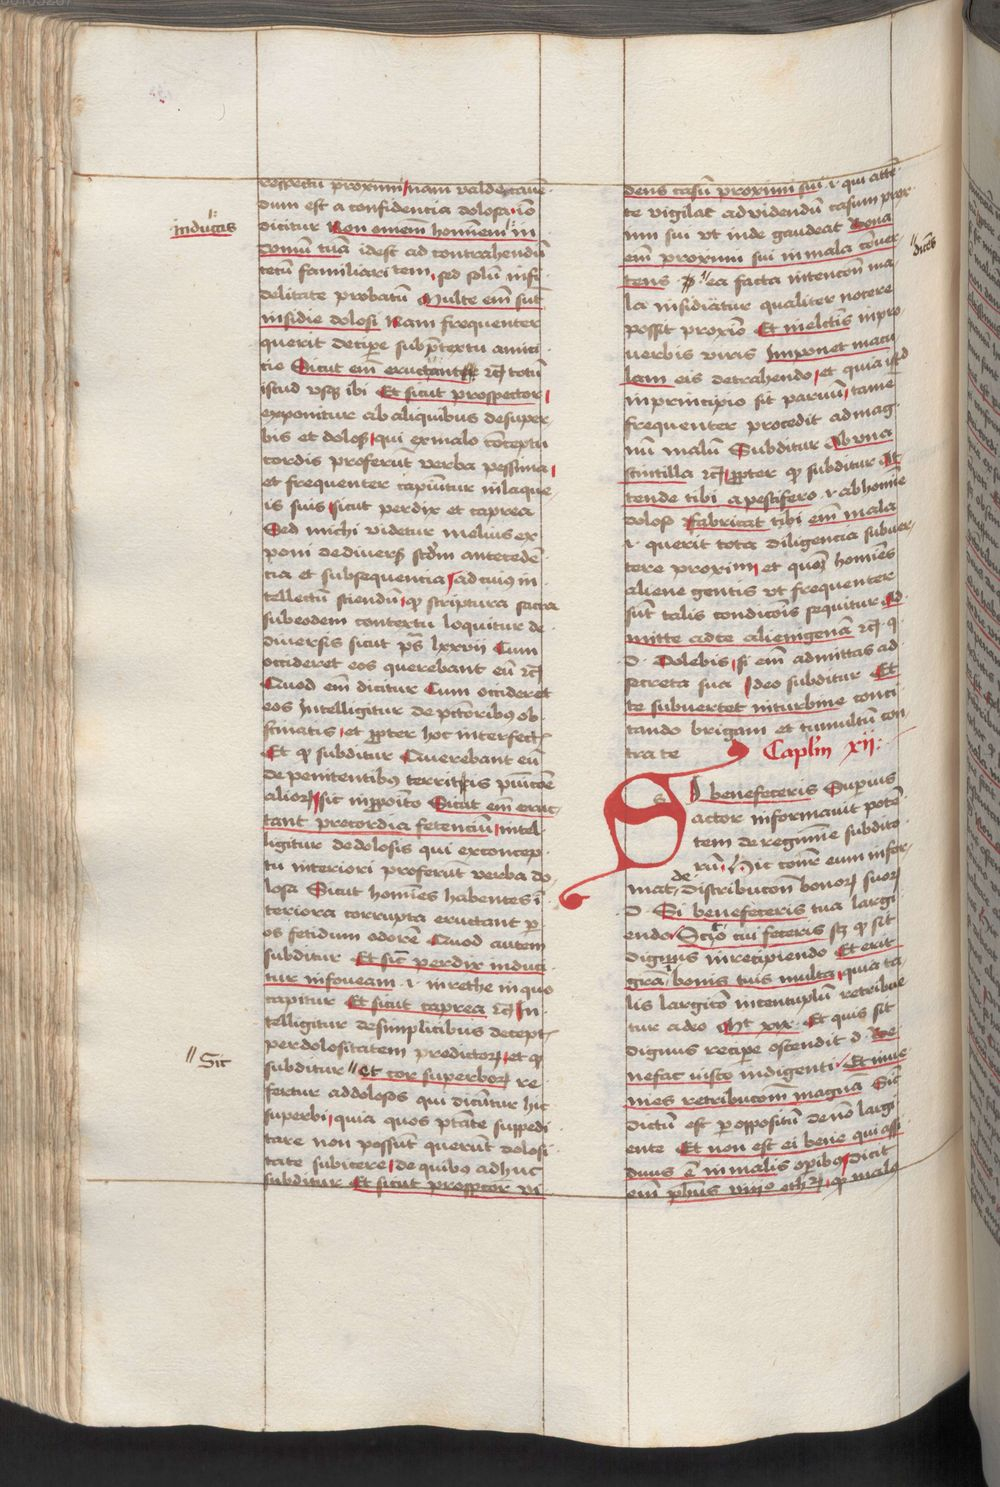 respectu proximi nam valde caue
dum est a confidencia dolosa io
dicitur Non omem hominem in
inducas
domũ tuã idest ad contrahendũ
tecũ familiaritem sed solũ in fi
delitate probatũ Multe em̃ sũt
insidie dolosi Nam frequenter
querit decipe sub p̃textu amici
cie Sicut em̃ eructant totũ
istud usq ibi Et sicut prospector
exponitur ab aliquibus de super
bis et dolos qui ex malo cõceptu
cordis proferũt verba pessima
et frequenter capiũtur in laque
is suis sicut perdix et caprea
Sed michi videtur melius ex
poni de divers scdm antecedẽ
cia et subsequencia ad cuius in
tellectũ sciendũ q scriptura sacra
sub eodem contextu loquitur de
diversis sicut ps̃ lxxvii Cum
occideret eos querebant eũ rc̃
Quod em̃ dicitur Cum occideret
eos Intelligitur de pctoribus ob
stinatis et propter hoc interfect
Et q subditur Querebant eũ
de penitentibus territis punicõe
alior sic in p̃posito Sicut em̃ eruc
tant precordia fetenciũ intel
ligitur de dolosis qui ex concep
tu interiori proferũt verba do
losa Sicut homĩes habentes ĩ
teriora corrupta eructant p
os fetidum odorẽ Quod autem
subditur Et sic perdix induci
tur in foueam i in rethe in quo
capitur Et sicut caprea rc̃ In
telligitur de simplicibus decept
per dolositatem predictor et q
Sic
subditur et cor superbor re
fertur ad dolosos qui dicũtur hic
superbi quia quos p̃tãte suppedi
tare non possũt querũt dolosi
tate subicere de quibus adhuc
subditur Et sicut prospector vi
dens casũ proximi sui i qui attẽ
te vigilat ad videndũ casum prox
imi sui vt inde gaudeat Bona
dicẽs
em̃ proximi sui in mala cõuer
tens ex ea facta intencõni ma
la insidiãtur qualiter nocere
possit proxĩo Et in electis in pro
uerbis viris Imponet macu
lam eis detrahendo et quia istd
in principio sit paruũ tamẽ
frequenter procedit ad mag
nũ malũ Subditur Ab una
scintilla rc̃ propter q subditur At
tende tibi a pestifero i ab homĩe
doloso fabricat tibi em̃ mala
i querit tota diligencia subuer
tere proximũ et quor homĩes
aliene gentis vt frequenter
sũt talis condicõis sequitur Ad
mitte ad te alienigenã rc̃ q
d Dolebis si em̃ admittas ad
secreta sua Ideo subditur Et
te subuertet in turbine conci
tando brigam et tumultũ con
tra te
Caplm xii
Si benefeceris Superius
actor informauit potẽ
tem de regimĩe subdito
rũ Hic cõnr eum infor
mat de distribucõn bonor suor
d Si benefeceris tua largi
endo Scito cui feceris scz q sit
dignus in recipiendo Et erit
grã bonis tuis multa quia ta
lis largitõ in centuplũ retribue
tur a deo Mt xix Et quis sit
dignus recipe ostendit d Be
nefac iusto indigenti Et inue
nies retribucõnem magnã Sic
dictũ est p oppositũ de nõ largi
ente Et non est ei bene qui assi
duus ẽ in malis opibus Dicit
em̃ ph̃us viijo eth q malo